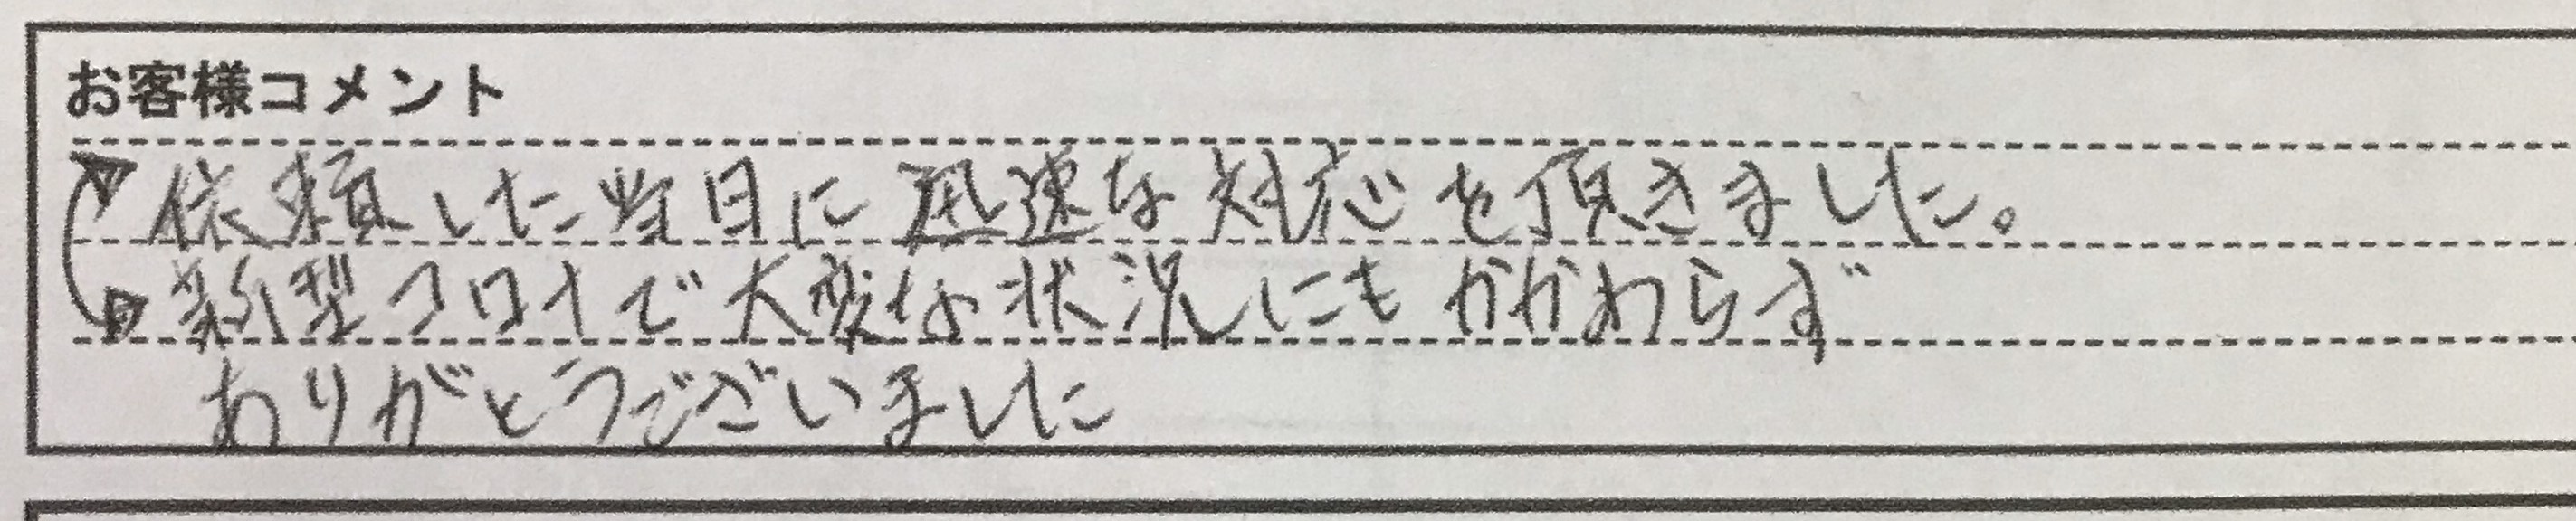 お客様コメント
依頼した当日に迅速な対応を頂きました。
新型コロナで大変な状況にもかかわらず
ありがとうございました